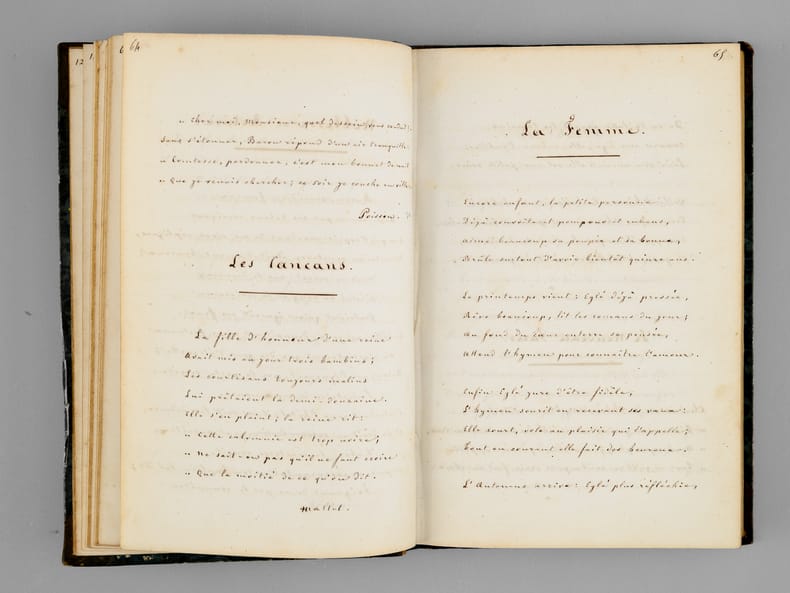 64
" Cher moi, Monsieur, quel dessein vous conduit?
Sans s'étonner, Baron répond d'un air tranquille
" Comtesse, pardonnez, c'est mon bonnet de nuit
" Que je venais chercher; ce soir je couche en ville
Poisson.
Les Cancans.
La fille d'honneur d'une reine
Avait mis au jour trois bambins;
Les courtisans toujours malins
Lui prêtaient la demi-douzaine.
Elle s'en plaint; la reine rit:
" Cette calomnie est trop noire;
" Ne sait-on pas qu'il ne faut croire
" Que la moitié de ce qu'on dit.
65
La Femme.
Encore enfant, la petite personne
Déjà convoite et pompons et rubans,
Aime beaucoup sa poupée et sa bonne,
Brûle surtout d'avoir bientôt quinze ans.
Le printemps vient: Eglé déjà pressée,
Rêve beaucoup, lit les romans du jour;
Au fond du cœur enterre sa pensée,
Attend l'hymen pour connaître l'amour.
Enfin Eglé jure d'être fidèle,
L'hymen sourit en recevant ses vœux:
Elle court, vole au plaisir qui l'appelle;
Tout en courant elle fait des heureux.
L'Automne arrive: Eglé plus réfléchie,